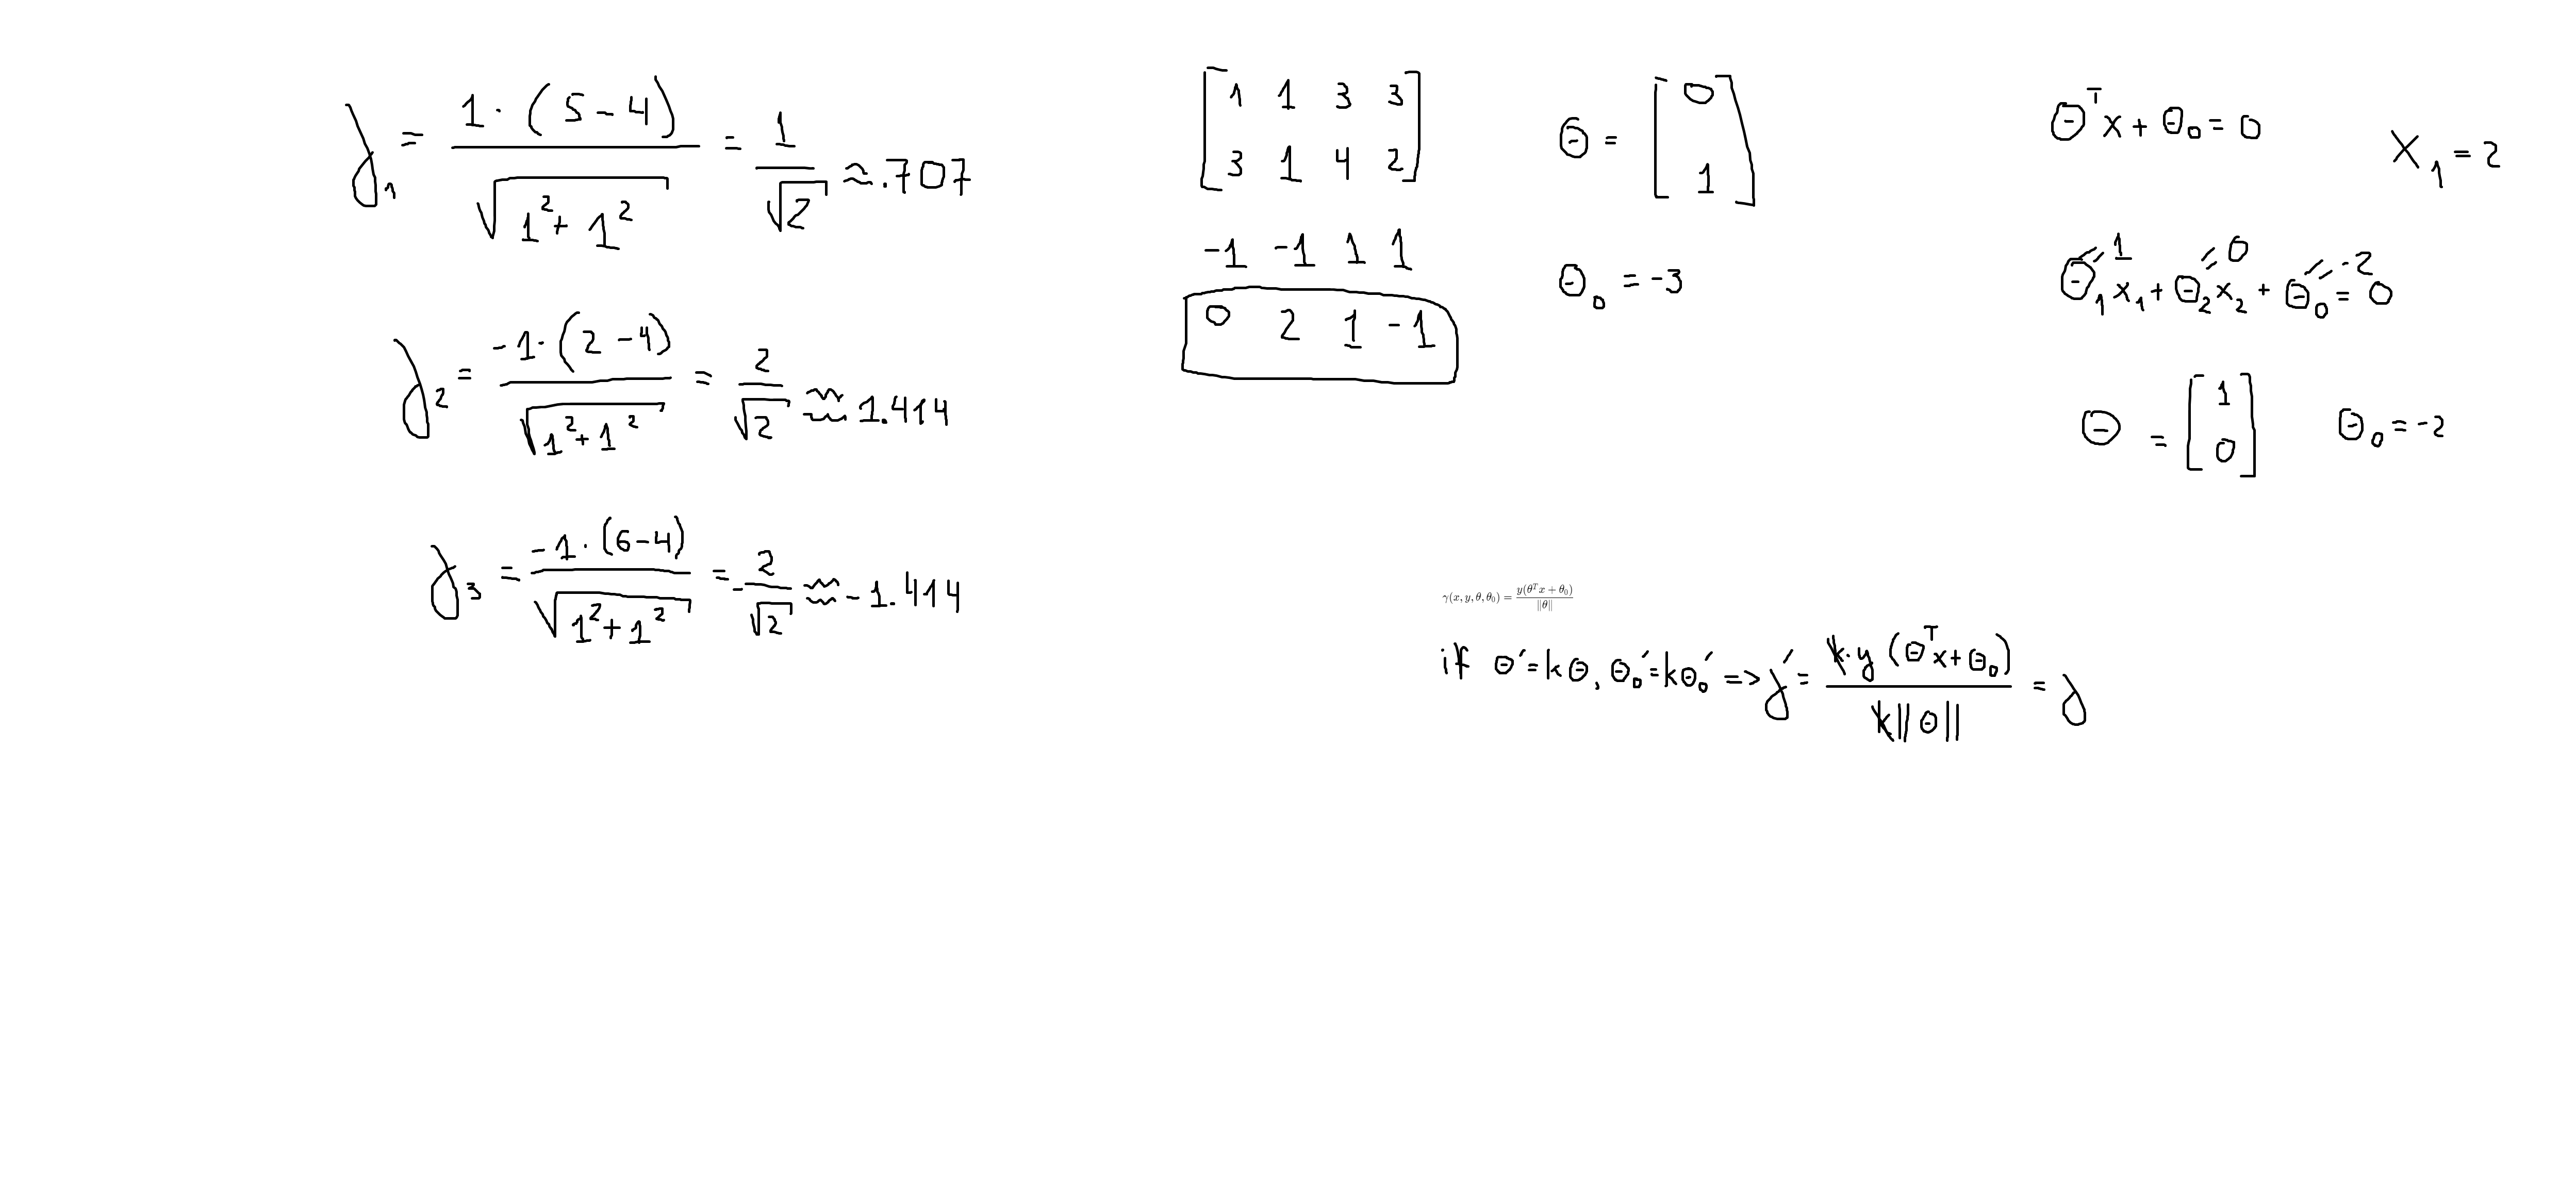 γ₁ = 1·(5-4) / √(1²+1²) = 1/√2 ≈ .707
γ₂ = -1·(2-4) / √(1²+1²) = 2/√2 ≈ 1.414
γ₃ = -1·(6-4) / √(1²+1²) = -2/√2 ≈ -1.414
[1 1 3 3
3 1 4 2]
-1 -1 1 1
0 2 1 -1
θ = [0
1]
θ₀ = -3
θᵀx + θ₀ = 0
x₁ = 2
=1 =0 =-2
θ₁x₁ + θ₂x₂ + θ₀ = 0
θ = [1
0] θ₀ = -2
γ(x, y, θ, θ₀) = y(θᵀx + θ₀) / ‖θ‖
if θ' = kθ, θ₀' = kθ₀' => γ' = k·y(θᵀx+θ₀) / k||θ|| = γ